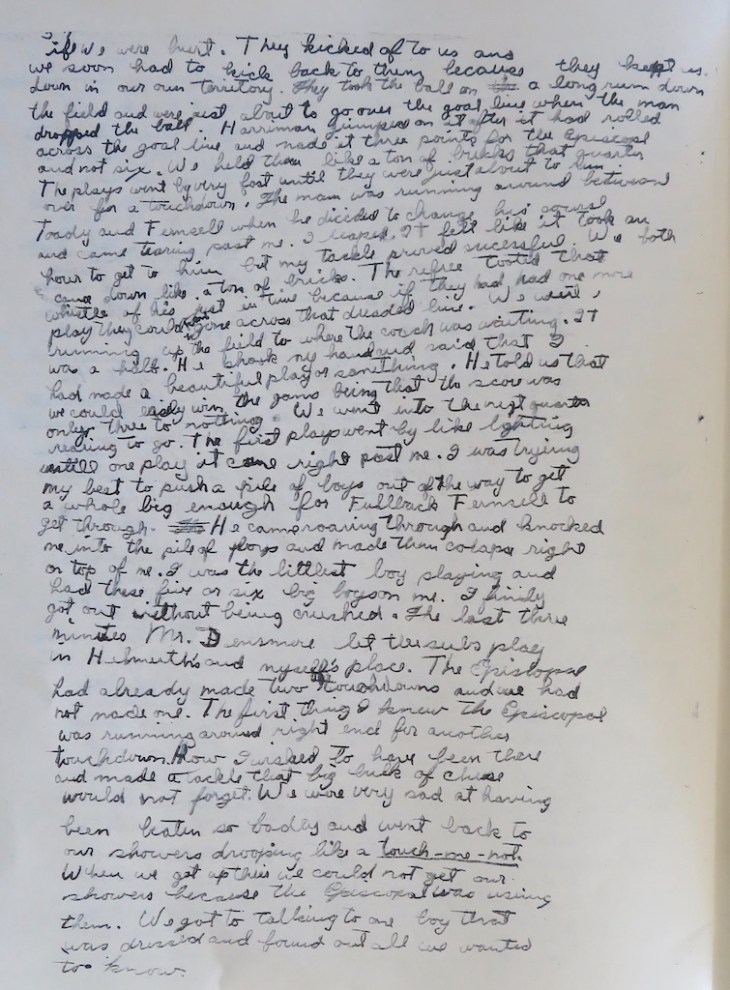 if we were hurt. They kicked of to us and
we soon had to kick back to them because they kept us
down in our own territory. They took the ball on a long run down
the field and were just about to go over the goal line when the man
dropped the ball. Harriman jumped on it after it had rolled
across the goal line and made it three points for the Episcopal
and not six. We held them like a ton of bricks that quarter
The plays went by very fast until they were just about to run
over for a touchdown. The man was running around between
Toady and Fernsell when he dicided to change his coursl
and came tearing past me. I leaped. It felt like it took an
hour to get to him but my tackle proved sucessful. We both
came down like a ton of bricks. The refree tooted that
whistle of his just in time because if they had had one more
play they could gone across that dreaded line. We went
running up the field to where the coach was waiting. It
was a half. He shook my hand and said that I
had made a beautiful play or something. He told us that
we could easly win the game being that the score was
only three to nothing. We went into the next quarter
reading to go. The first plays went by like lghtning
untill one play it came right past me. I was tryeing
my best to push a pile of boys out of the way to get
a whole big enough for Fullback Fernsell to
get through. He came roaring through and knocked
me into the pile of boys and made them colapse right
on top of me. I was the littlest boy playing and
had these five or six big boys on me. I finily
got out without being crushed. The last three
minutes Mr. Densmore let the subs play
in Helmuth's and myself's place. The Epistopal
had already made two touchdowns and we had
not made one. The first thing I knew the Episcopal
was running around right end for another
touchdown. How I wished to have been there
and made a tackle that big hunk of chese
would not forget. We were very sad at having
been beaten so badly and went back to
our showers drooping like a touch-me-not.
When we got up their we could not get our
showers because the Episcopal was using
them. We got to talking to one boy that
was dressed and found out all we wanted
to know.